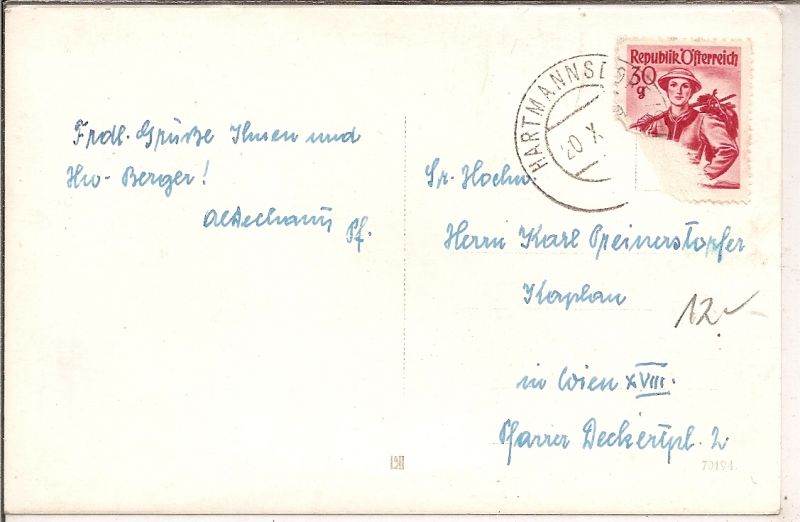 Frdl. Grüße Ihnen und
Hw. Berger!
Pf.
HARTMANNSD
20 X
Republik Österreich
30
g
Sr. Hochw.
Herrn Karl Preinerstorfer
Kaplan
in Wien XVIII.
Pfarrer Deckertpl. 2
12.-
70194.